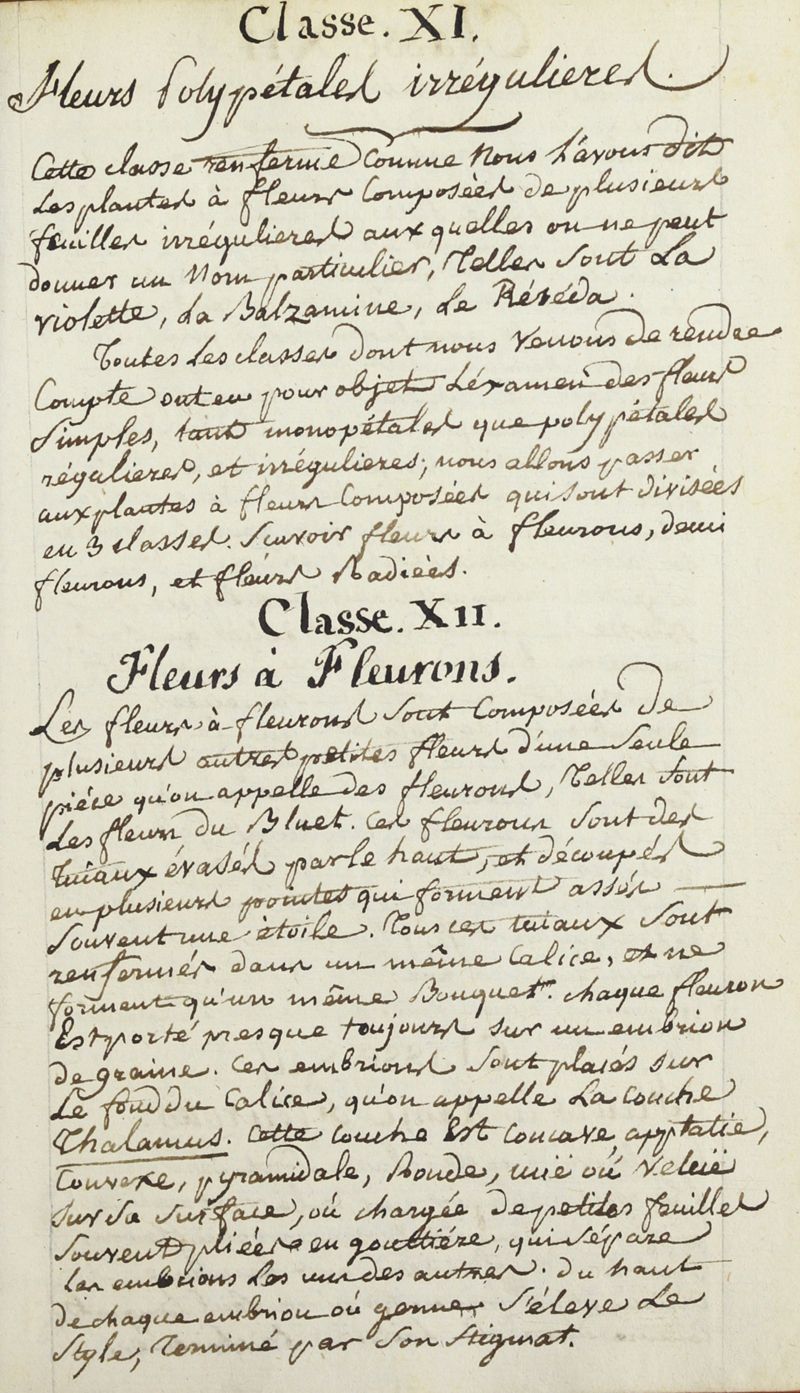 Classe. XI.
Fleurs Polypétales irrégulieres.
Cette classe renferme Comme Nous L'avons dit
Les plantes à fleurs Composées de plusieurs
feuilles irrégulieres aux quelles on ne peut
donner un Nom particulier, Telles Sont La
violette, La Balzamine, Le Réséda.
Toutes Les classes dont nous Venons de rendre
Compte ont eu pour objet L'éxamen des fleurs
Simples, tant monopétales que polypétales
régulieres, et irrégulieres; nous allons passer
aux plantes à fleurs Composées qui sont divisées
en 3 classes. Scavoir fleurs à fleurons, demi
fleurons, et fleurs Radiées.
Classe. XII.
Fleurs à Fleurons.
Les fleurs à fleurons Sont Composées de
plusieurs autres petites fleurs d'une Seule
piéce qu'on appelle des fleurons, Telles Sont
Les fleurs du Bluet. Ces fleurons Sont des
Tuiaux évasés par le haut, et découpés
en plusieurs pointes qui forment assés
Souvent une étoile. Tous ces tuiaux Sont
renfermés dans un même Calice, et ne
forment qu'un même Bouquet. chaque fleuron
Est porté presque toujours sur un embrion
de graine. Ces embrions Sont placés sur
Le fond du Calice, qu'on appelle La couche
Thalamus. Cette couche Est concave, applatie,
Convexe, pyramidale, Ronde, nuë où Veluë
sur sa surface, où chargée de petites feuilles
Souvent pliées en gouttiére, qui sépare
les embrions Les uns des autres. du haut
de chaque embrion où germe S'éleve Le
Style, Terminé par Son Stigmat.